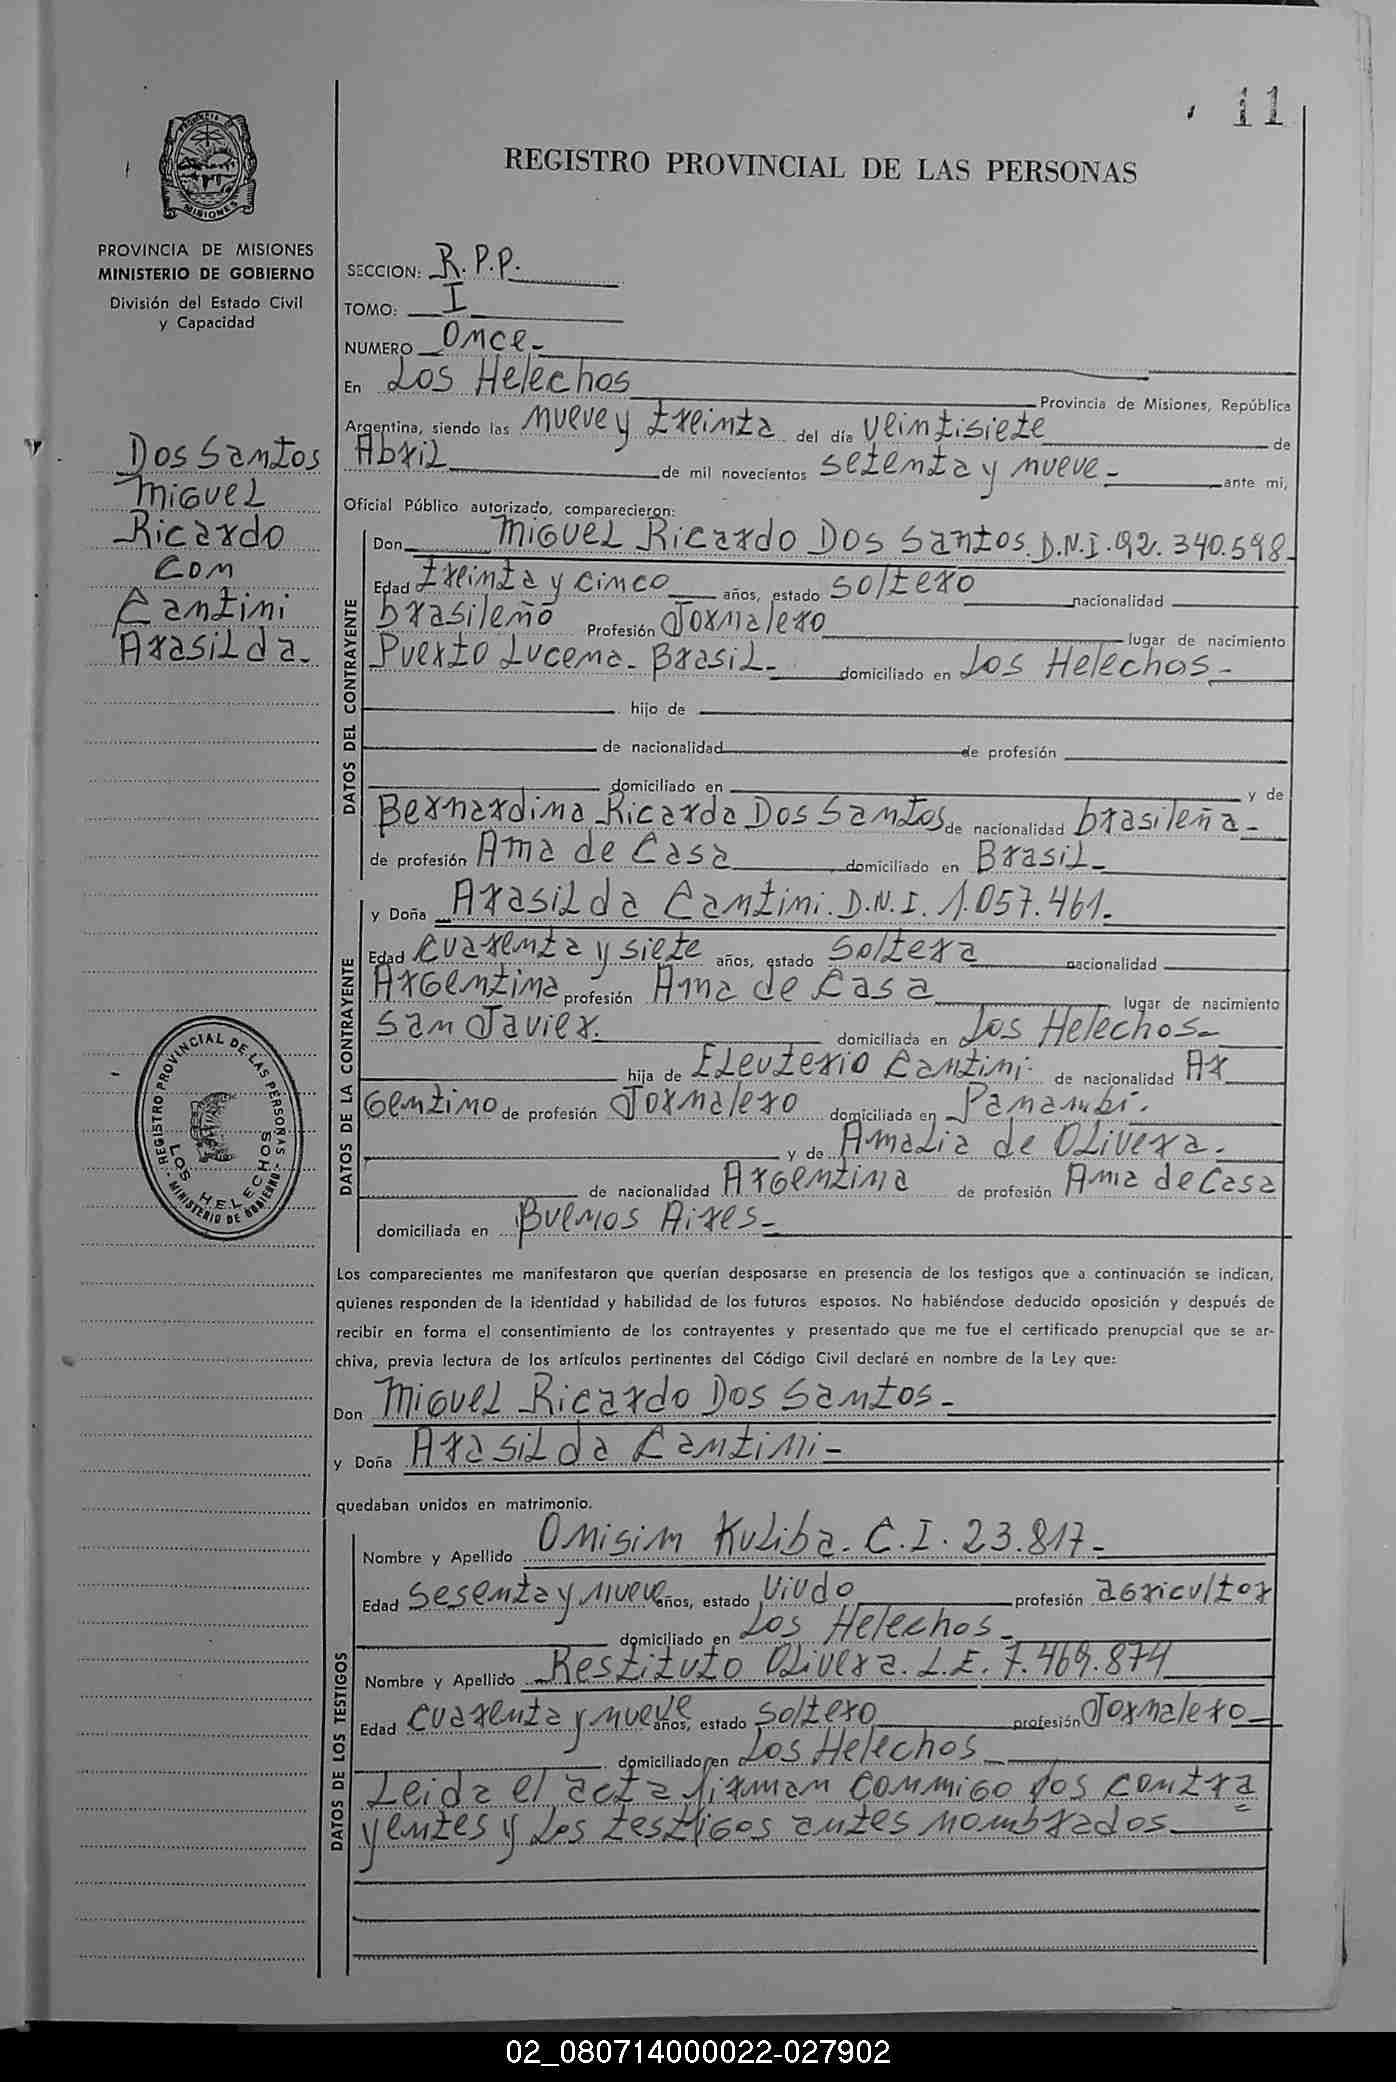 11
REGISTRO PROVINCIAL DE LAS PERSONAS
MISIONES
PROVINCIA DE MISIONES
MINISTERIO DE GOBIERNO
División del Estado Civil
y Capacidad
Dos Santos
Miguel
Ricardo
con
Cantini
Arasilda.-
REGISTRO PROVINCIAL DE LAS PERSONAS
LOS HELECHOS
MINISTERIO DE GOBIERNO
SECCION: R.P.P.
TOMO: I
NUMERO Once.-
En Los Helechos Provincia de Misiones, República
Argentina, siendo las nueve y treinta del día veintisiete de
Abril de mil novecientos setenta y nueve.- ante mi,
Oficial Público autorizado, comparecieron:
DATOS DEL CONTRAYENTE
Don Miguel Ricardo Dos Santos. D.N.I. 92.340.598-
Edad treinta y cinco años, estado soltero nacionalidad
brasileño Profesión Jornalero lugar de nacimiento
Puerto Lucena- Brasil- domiciliado en Los Helechos-
hijo de
de nacionalidad de profesión
domiciliado en y de
Bernardina Ricarda Dos Santos de nacionalidad brasileña-
de profesión Ama de Casa domiciliado en Brasil-
DATOS DE LA CONTRAYENTE
y Doña Arasilda Cantini. D.N.I. 1.057.461.
Edad cuarenta y siete años, estado soltera nacionalidad
Argentina profesión Ama de Casa lugar de nacimiento
San Javier. domiciliada en Los Helechos-
hija de Eleuterio Cantini. de nacionalidad Ar
gentino de profesión Jornalero domiciliada en Panambí.
y de Amalia de Olivera.
de nacionalidad Argentina de profesión Ama de Casa
domiciliada en Buenos Aires-
Los comparecientes me manifestaron que querían desposarse en presencia de los testigos que a continuación se indican,
quienes responden de la identidad y habilidad de los futuros esposos. No habiéndose deducido oposición y después de
recibir en forma el consentimiento de los contrayentes y presentado que me fue el certificado prenupcial que se ar-
chiva, previa lectura de los artículos pertinentes del Código Civil declaré en nombre de la Ley que:
Don Miguel Ricardo Dos Santos-
y Doña Arasilda Cantini-
quedaban unidos en matrimonio.
DATOS DE LOS TESTIGOS
Nombre y Apellido Onisim Kuliba. C.I. 23.817-
Edad sesenta y nueve años, estado viudo profesión agricultor
domiciliado en Los Helechos-
Nombre y Apellido Restituto Olivera. L.E. 7.469.874
Edad cuarenta y nueve años, estado soltero profesión Jornalero-
domiciliado en Los Helechos-
Leida el acta firman conmigo los contra
yentes y los testigos antes nombrados-
02_080714000022-027902